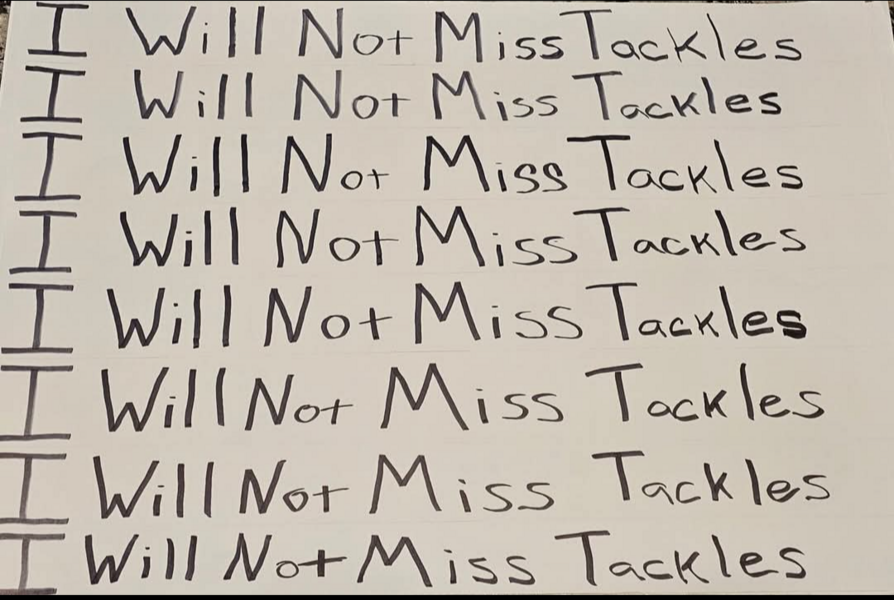 I Will Not Miss Tackles
I Will Not Miss Tackles
I Will Not Miss Tackles
I Will Not Miss Tackles
I Will Not Miss Tackles
I Will Not Miss Tackles
I Will Not Miss Tackles
I Will Not Miss Tackles